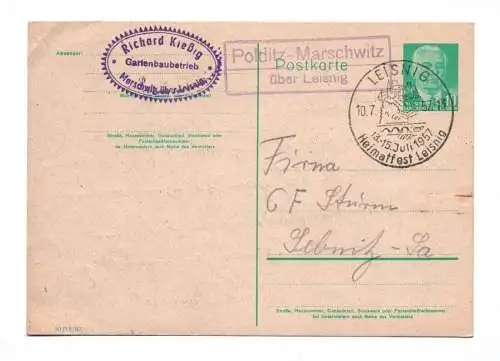 Absender:
Richard Kießig
Gartenbaubetrieb
Marschwitz über Leisnig
Polditz-Marschwitz
über Leisnig
Postkarte
LEISNIG
10.7.
13.-15. Juli 1957
Heimatfest Leisnig
Straße, Hausnummer, Gebäudeteil, Stockwerk oder
Postschließfachnummer
bei Untermietern auch Name des Vermieters
Firma
CF Sturm
Sebnitz-Sa
Straße, Hausnummer, Gebäudeteil, Stockwerk oder Postschließfachnummer
bei Untermietern auch Name des Vermieters